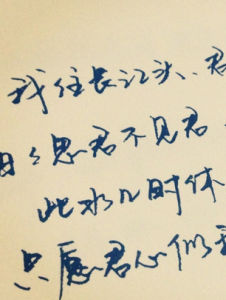 我住长江头、君
日々思君不见君
此水几时休
只愿君心似我